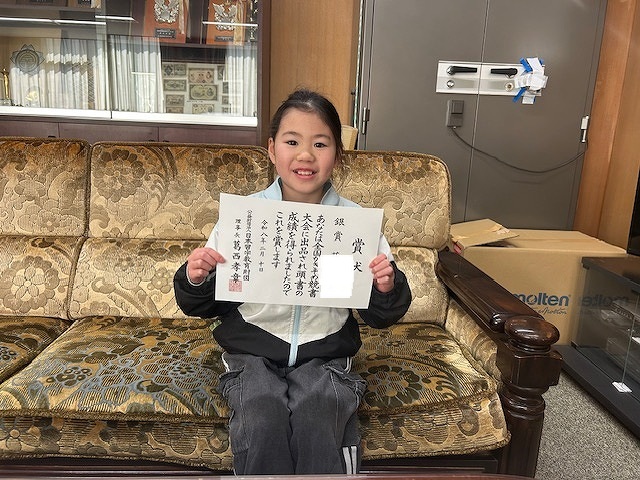 賞状
銀賞
あなたは全国書き初め競書
大会に出品され頭書の
成績を得られましたので
これを賞します
令和八年二月十日
公益財団法人日本習字教育財団
理事長 葛西孝章
molten
molten